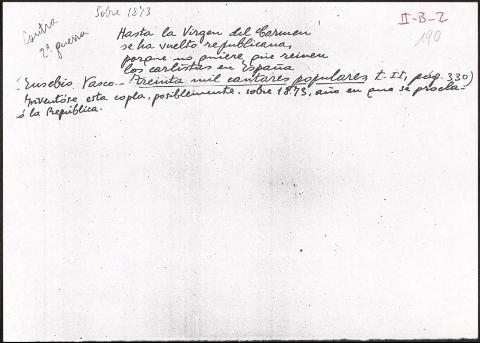 Contra
2ª guerra
Sobre 1873
II-B-2
190
Hasta la Virgen del Carmen
se ha vuelto republicana,
porque no quiere que reinen
los carlistas en España
(Eusebio Vasco.- Treinta mil cantares populares, t. II, pág. 330)
Invéntose esta copla, posiblemente, sobre 1873, año en que se procla-
ó la República.